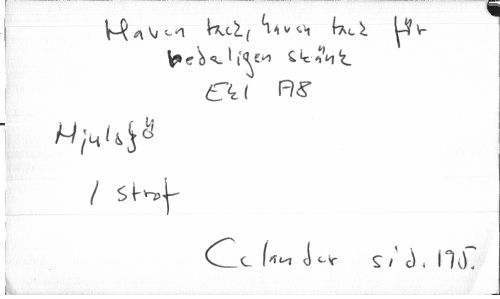 Haven tack, haven tack för
bedaligen skänk
Ek1 A8
Mjulsjö
1 strof
Celander sid. 195.